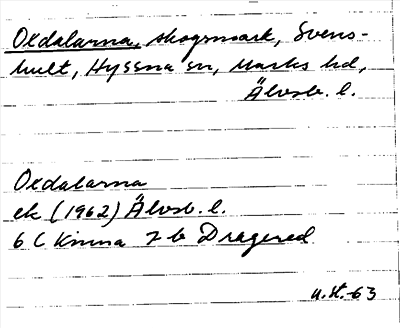 Oxdalarna, skogsmark, Svens-
hult, Hyssna sn, Marks hd,
Älvsb. l.
Oxdalarna
ek (1962) Älvsb. l.
6 C Kinna 7 b Dragered
u.st.-63